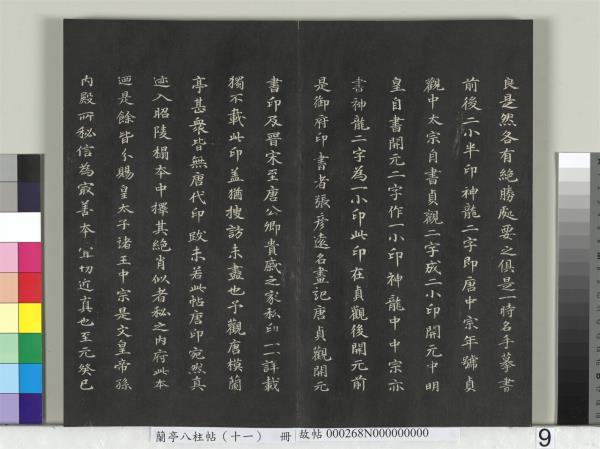 良是然各有絶勝處要之俱是一時名手摹書
前後二小半印神龍二字即唐中宗年號貞
觀中太宗自書貞觀二字成二小印開元中明
皇自書開元二字作一小印神龍中中宗亦
書神龍二字為一小印此印在貞觀後開元前
是御府印書者張彦遠名畫記唐貞觀開元
書印及晋宋至唐公卿貴戚之家私印一一詳載
獨不載此印盖猶搜訪未盡也予觀唐模蘭
亭甚衆皆無唐代印跋未若此帖唐印宛然真
迹入昭陵搨本中擇其絶肖似者秘之内府此本
迺是餘皆分賜皇太子諸王中宗是文皇帝孫
内殿所秘信為最善本宜切近真也至元癸巳
蘭亭八柱帖（十一） 冊 故帖 000268N000000000
9